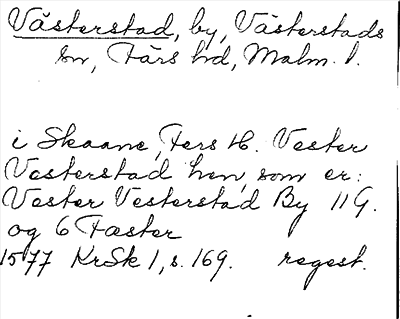 Västerstad, by, Västerstads
sn, Färs hd, Malm. l.
i Skaane, Fers H. Vester
Vesterstad hen, som er:
Vester Vesterstad By 11 G.
og 6 Fæster
1577 KrSk 1, s. 169. regest.